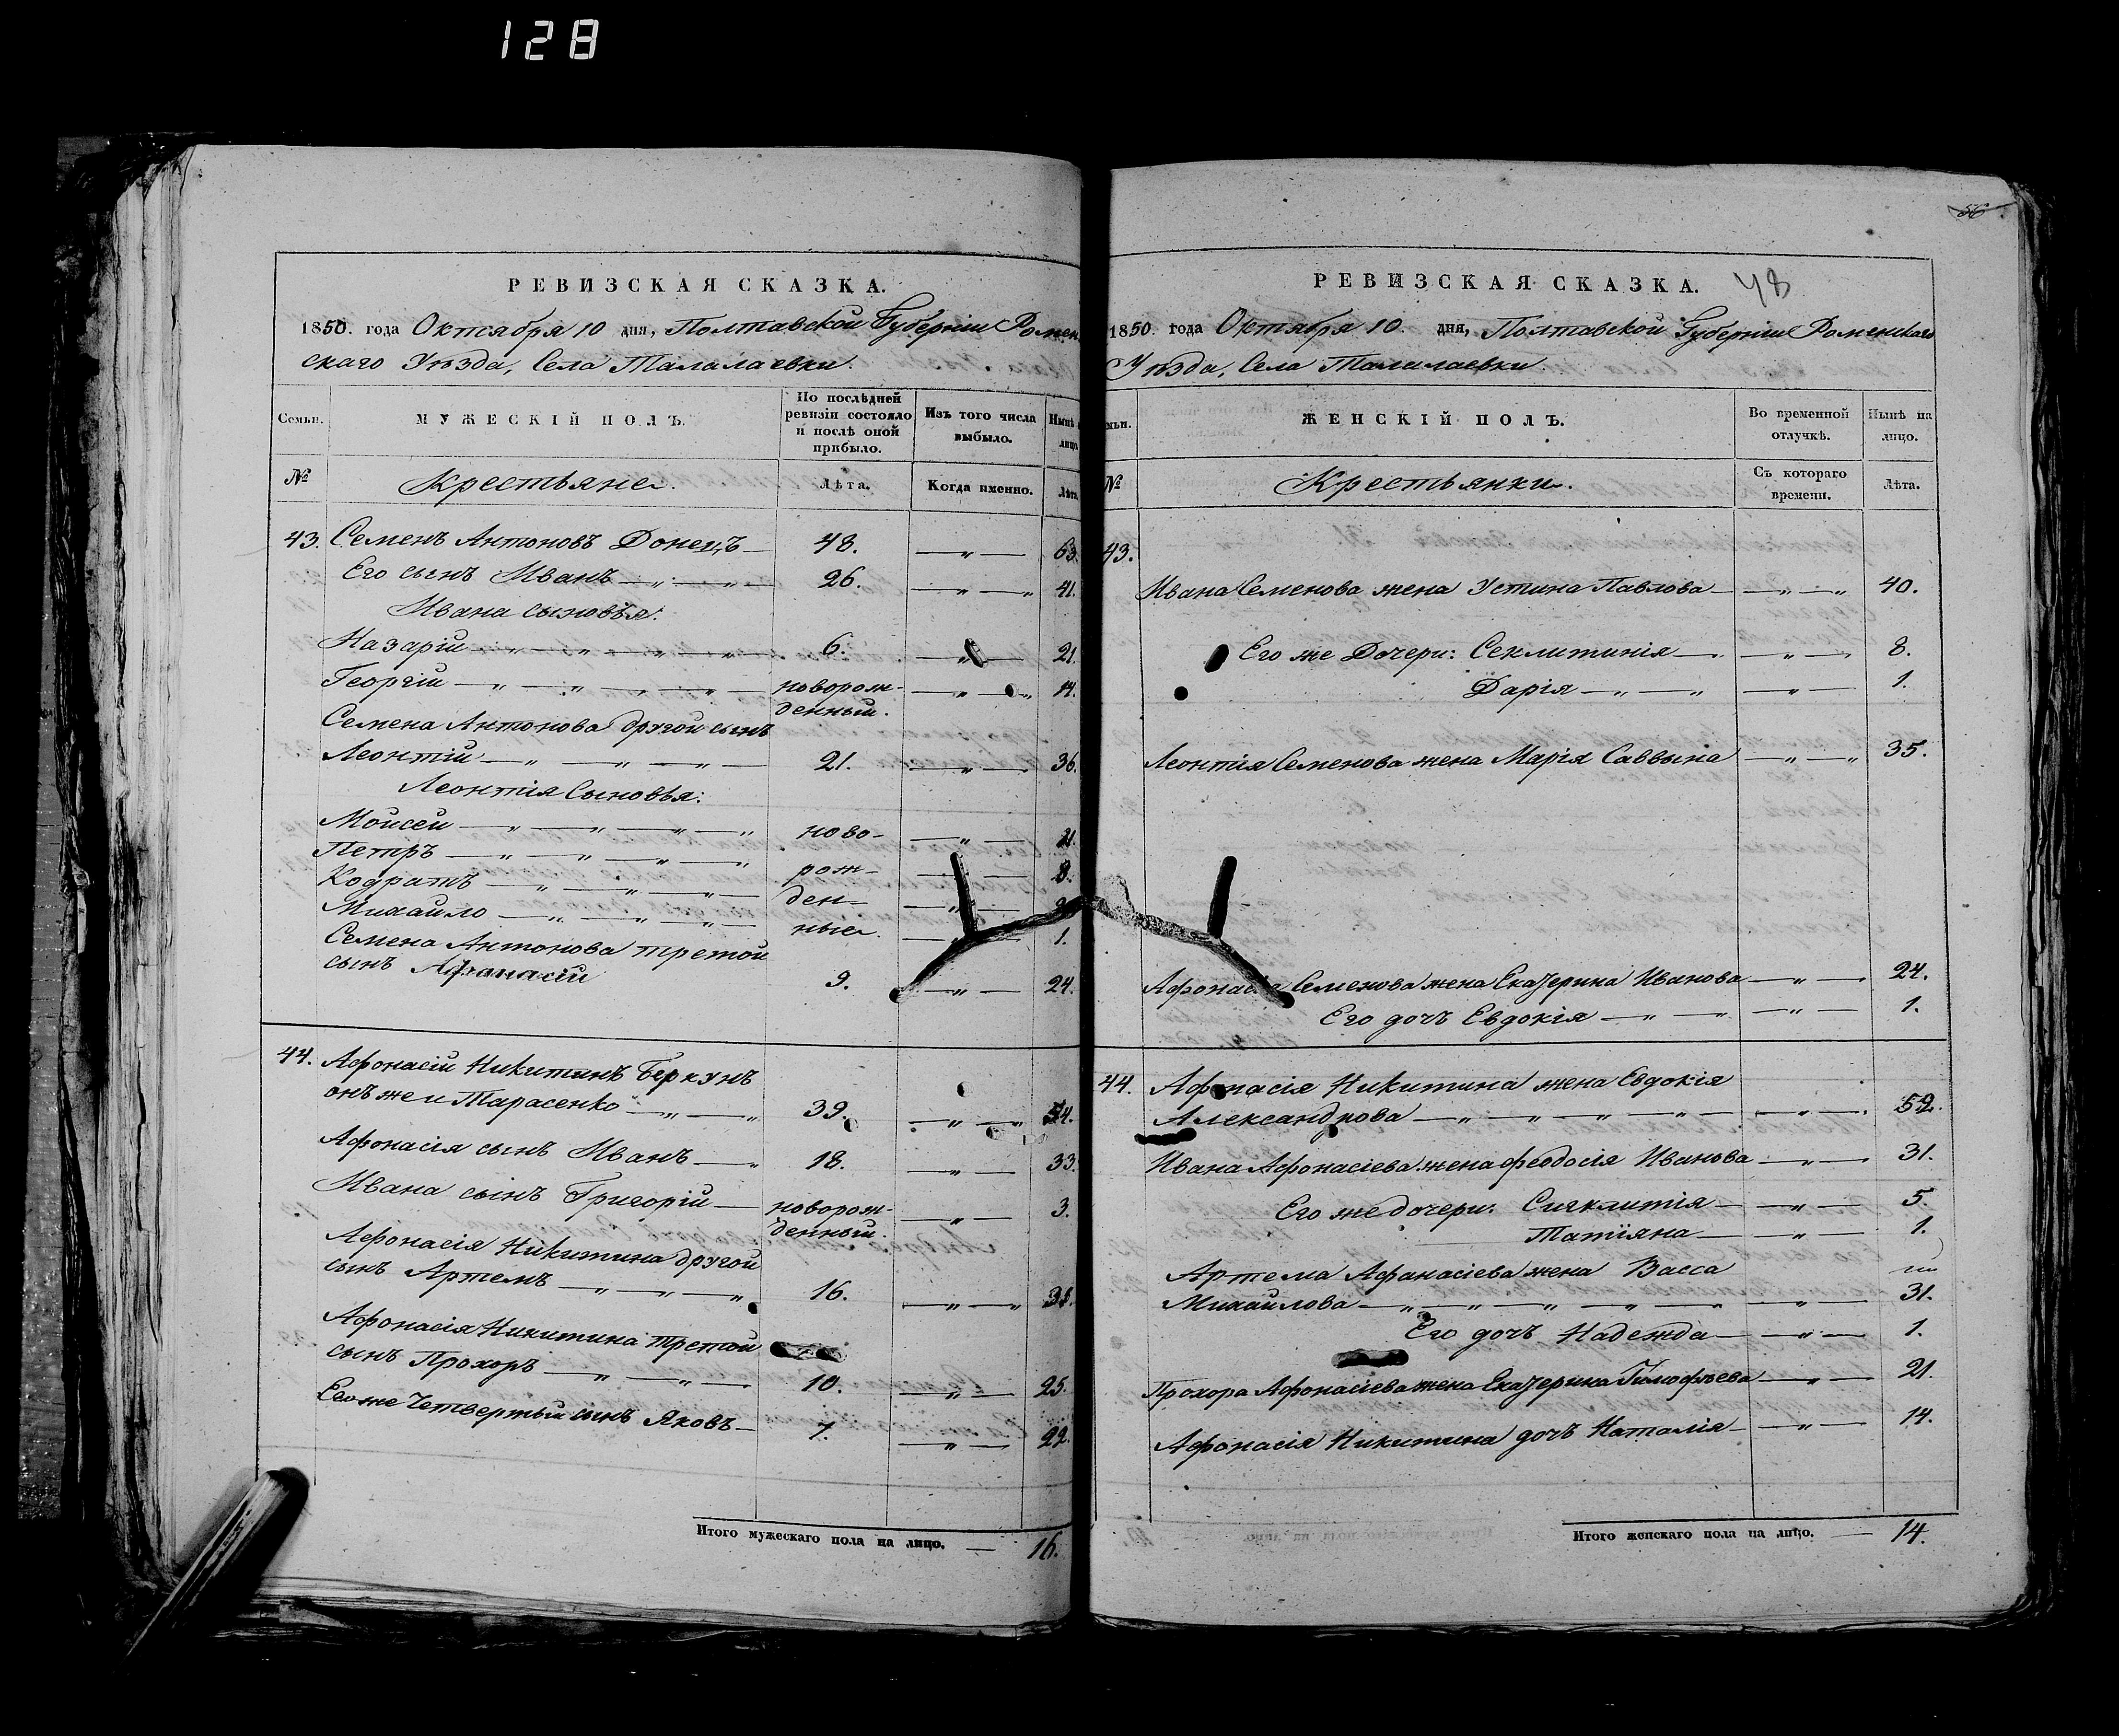 128
РЕВИЗСКАЯ СКАЗКА.
1850. года Октября 10 дня, Полтавской Губерніи Ромен
скаго Уѣзда, Села Талалаевки.
Семьи.
МУЖЕСКІЙ ПОЛЪ.
По послѣдней
ревизіи состояло
и послѣ оной
прибыло.
Изъ того числа
выбыло.
Нынѣ
лицо
№
Крестьяне.
Лѣта.
Когда именно.
Лѣта
43. Семенъ Антоновъ Донецъ — 48. — „ — 63.
Его сынъ Иванъ — „ — „ — 26. — „ — „ 41.
Ивана сыновья:
Назарій — „ — „ — „ — „ — 6. — „ — 21.
Георгій — „ — „ — „ — новорож- — „ — „ 14.
денный.
Семена Антонова другой сынъ
Леонтій — „ — „ — „ — 21. — „ — 36.
Леонтія Сыновья:
Мойсей — „ — „ — „ — „ ново- — „ —
Петръ — „ — „ — „ — „ рож- — „ — 8.
Кодратъ — „ — „ — „ — ден- — „ —
Михайло — „ — „ — „ — ные. — „ — 1.
Семена Антонова третой
сынъ Афанасій 9. — „ — 24.
44. Афонасій Никитинъ Беркунъ
онъ же и Тарасенко — „ — „ 39. — „ — „ 54.
Афонасія сынъ Иванъ — „ 18. — „ — 33.
Ивана сынъ Григорій — новорож- — „ — 3.
денный.
Афонасія Никитина другой
сынъ Артемъ — „ — „ — „ 16. — „ — „ 31.
Афонасія Никитина третой
сынъ Прохоръ — „ — „ — 10. — „ — 25.
Его же Четвертый сынъ Яковъ — 7. — „ — 22.
Итого мужескаго пола на лицо. — 16.
56
РЕВИЗСКАЯ СКАЗКА. 48
1850. года Октября 10. дня, Полтавской Губерніи Роменскаго
Уѣзда, Села Талалаевки.
мьи.
ЖЕНСКІЙ ПОЛЪ.
Во временной
отлучкѣ.
Нынѣ на
лицо.
№
Крестьянки.
Съ котораго
времени.
Лѣта.
43.
Ивана Семенова жена Устина Павлова — „ — „ 40.
Его же Дочери: Секлитинія — „ — 8.
Дарія — „ — „ — „ — 1.
Леонтія Семенова жена Марія Саввына — „ — „ 35.
Афонасія Семенова жена Екатерина Иванова — „ — 24.
Его дочь Евдокія — „ — „ — „ — 1.
44. Афонасія Никитина жена Евдокія
Александрова — „ — „ — „ — „ — „ — 52.
Ивана Афонасіева жена Феодосія Иванова — „ — 31.
Его же дочери: Сиклитія — „ — 5.
Татіяна — „ — 1.
Артема Афанасіева жена Васса
Михайлова — „ — „ — „ — „ — „ — 31.
Его дочь Надежда — „ — 1.
Прохора Афонасіева жена Екатерина Тимофѣева — „ — 21.
Афонасія Никитина дочь Наталія — „ — 14.
Итого женскаго пола на лицо. — 14.